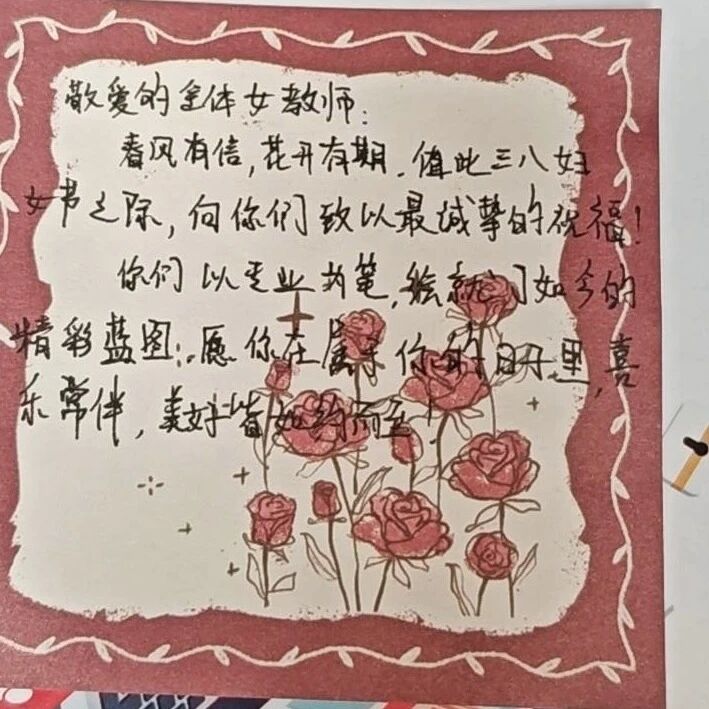 敬爱的全体女教师:
春风有信,花开有期.值此三八妇
女节之际,向你们致以最诚挚的祝福!
你们以专业为笔,绘就了如今的
精彩蓝图;.愿你在属于你的日子里,喜
乐常伴,美好皆如约而至!